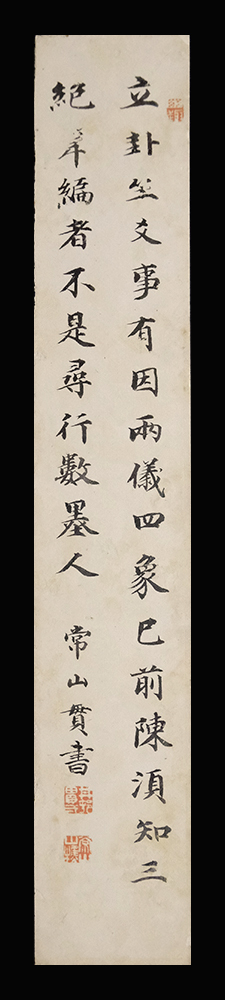 立卦生爻事有因兩儀四象已前陳須知三
絕韋編者不是尋行數墨人
常山貫書